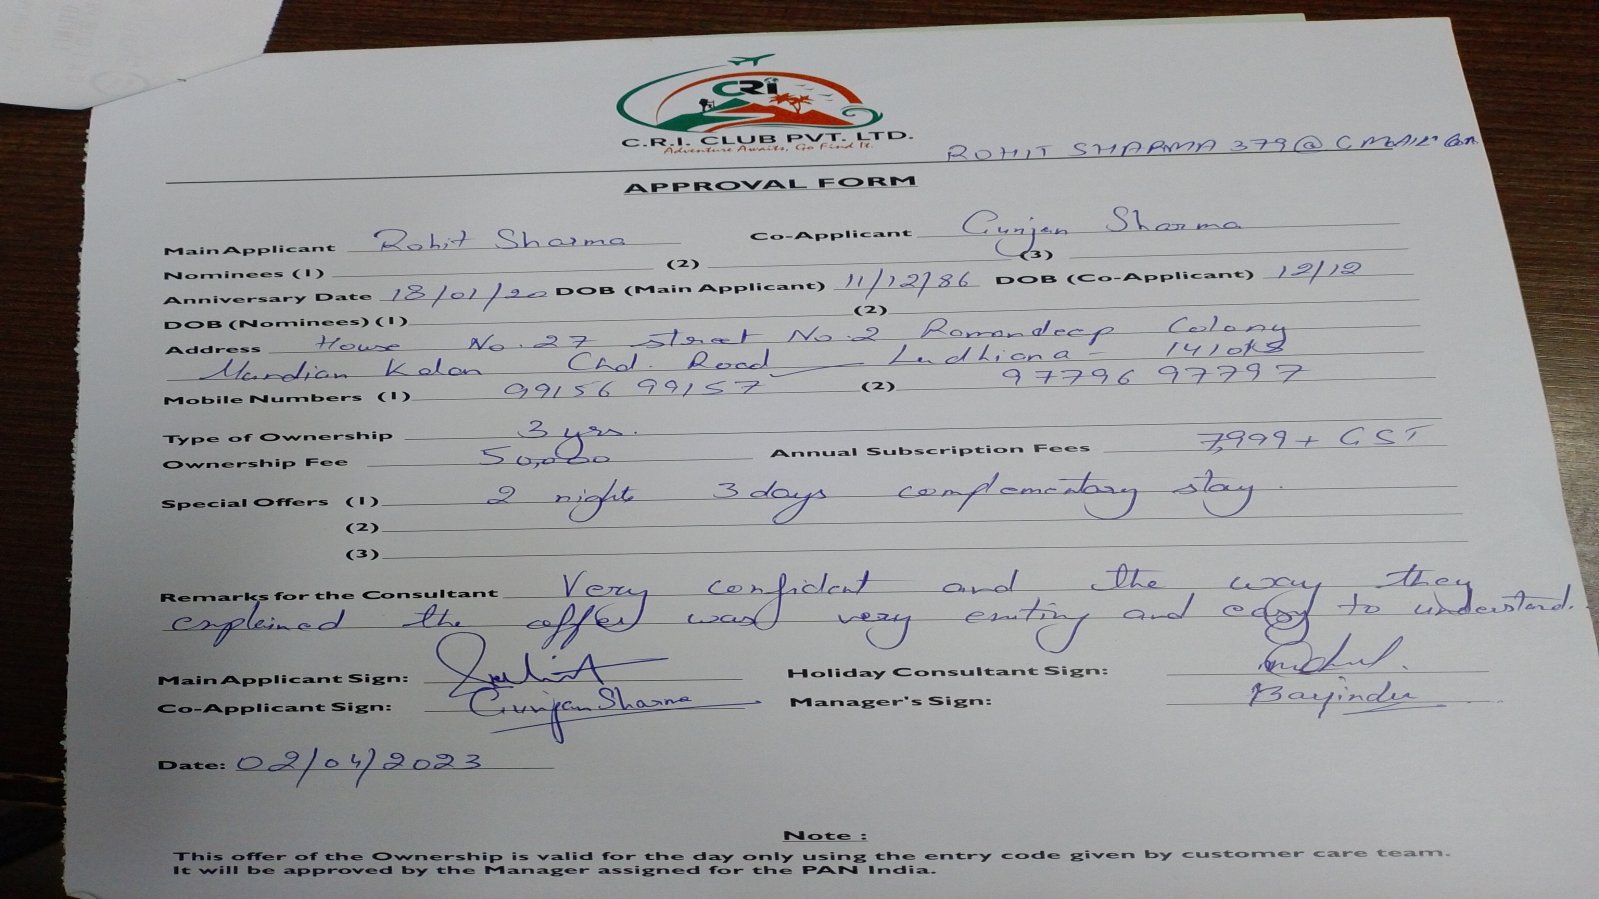 CRI
C.R.I. CLUB PVT. LTD.
Adventure Awaits, Go Find It.
ROHIT SHARMA 379@GMAIL.Com
APPROVAL FORM
Main Applicant Rohit Sharma Co-Applicant Gunjan Sharma
Nominees (1) (2) (3)
Anniversary Date 18/01/20 DOB (Main Applicant) 11/12/86 DOB (Co-Applicant) 12/12
DOB (Nominees) (1) (2)
Address House No. 27 street No. 2 Ramandeep Colony
Mundian Kalan Chd. Road Ludhiana -
Mobile Numbers (1) 99156 99157 (2) 97796 97797
Type of Ownership 3 yrs.
Ownership Fee 50,000 Annual Subscription Fees 7,999 + GST
Special Offers (1) 2 nights 3 days complementary stay.
(2)
(3)
Remarks for the Consultant Very confident and the way they
explained the offer was very exiting and easy to understand.
Main Applicant Sign: Holiday Consultant Sign:
Co-Applicant Sign: Gunjan Sharma Manager's Sign:
Date: 02/04/2023
Note :
This offer of the Ownership is valid for the day only using the entry code given by customer care team.
It will be approved by the Manager assigned for the PAN India.